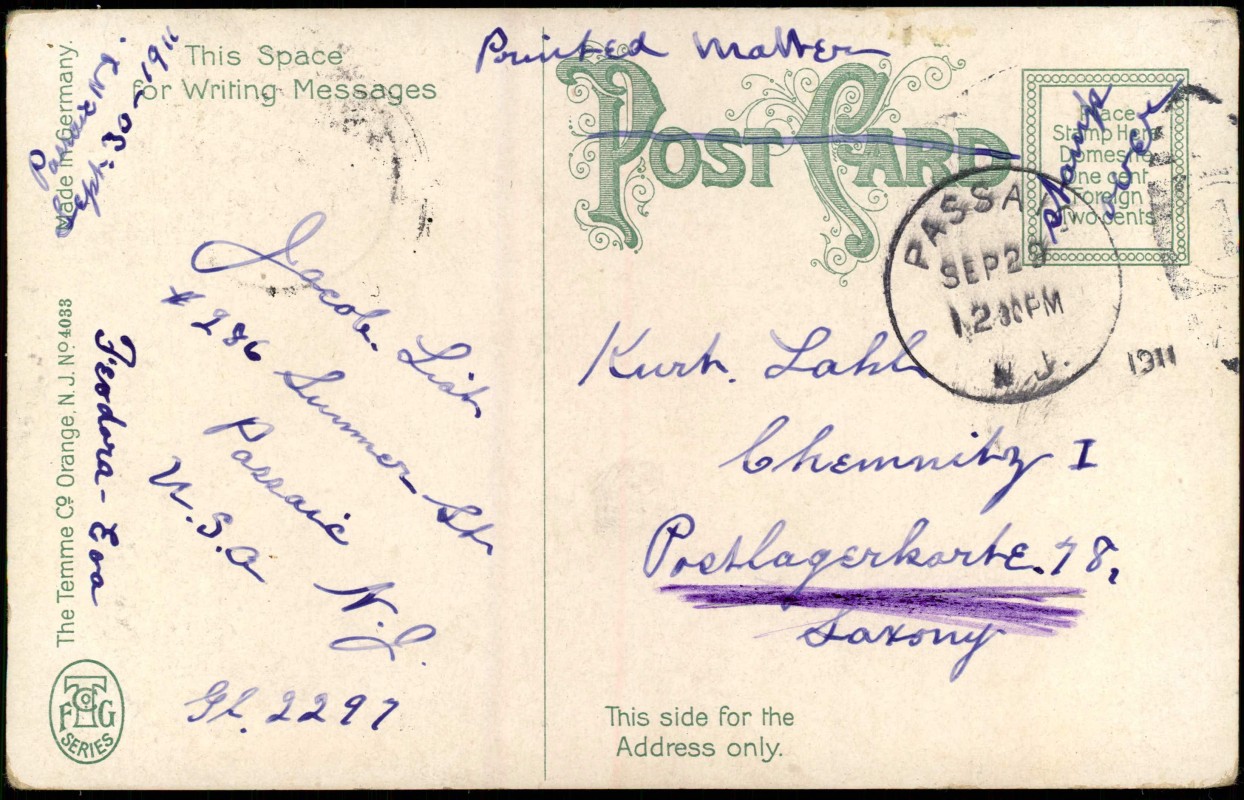 This Space
for Writing Messages
Made in Germany.
Passaic N.J.
Sept. 30 - 1911
Jacob. List
# 286 Summer St
Passaic
N.J.
U.S.A
Gl. 2297
Feodora - Eva
The Temme Co Orange, N.J. No 4033
F T Co G
SERIES
Printed Matter
POST CARD
Place
Stamp Here
Domestic
One cent
Foreign
Two cents
Stamp
over
PASSAI
SEP 29
12 30 PM
N.J.
1911
Kurt. Lahl
Chemnitz I
Postlagerkarte. 78,
Saxony
This side for the
Address only.